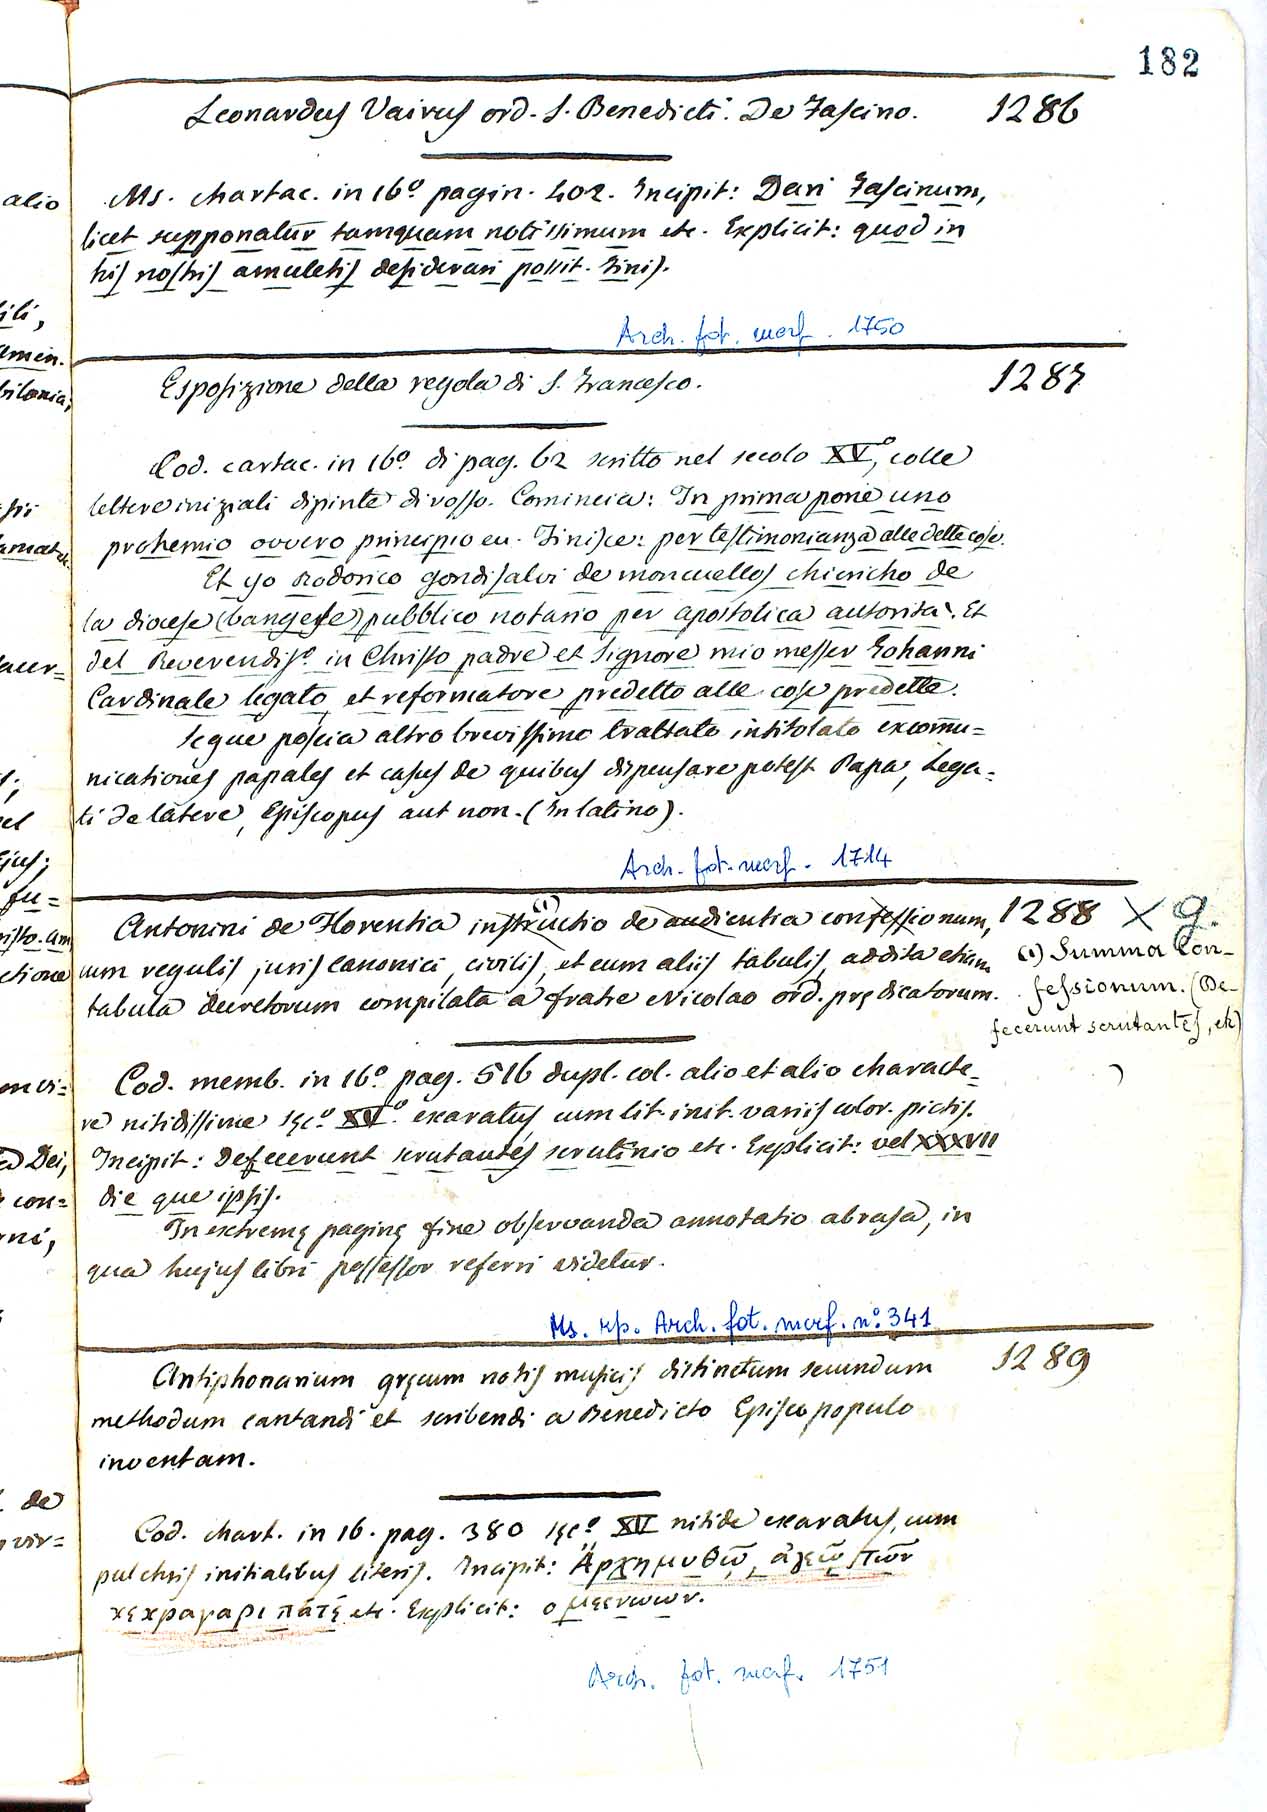 182
Leonardus Vairus ord. S. Benedicti. De Fascino. 1286
Ms. chartac. in 16º pagin. 402. Incipit: Dari Fascinum,
licet supponatur tamquam notissimum etc. Explicit: quod in
his nostris amuletis desiderari possit. Finis.
Arch. fot. marf. 1750
Esposizione della regola di S. Francesco. 1287
Cod. cartac. in 16º di pag. 62 scritto nel secolo XVº, colle
lettere iniziali dipinte di rosso. Comincia: In prima pone uno
prohemio overo principio eu. Finisce: per testimonianza alle dette cose.
Et yo Rodorico gondisalvi de moncuellos chiericho de
la diocese (bangese) pubblico notario per apostolica autorità. Et
del Reverendisº in Christo padre et Signore mio messer Johanni
Cardinale legato et reformatore predetto alle cose predette.
Segue poscia altro brevissimo trattato intitolato excommu=
nicationes papales et casus de quibus dispensare potest Papa, Lega=
ti de latere, Episcopus aut non. (In latino).
Arch. fot. marf. 1714
Antonini de Florentia instructio de audientia confessionum, 1288 X g.
cum regulis juris canonici, civilis, et cum aliis tabulis, addita etiam
tabula decretorum compilata a fratre Nicolao ord. prędicatorum.
(1)
(1) Summa Con-
fessionum. (De-
fecerunt scrutantes, etc)
Cod. memb. in 16º pag. 516 dupl. col. alio et alio characte=
re nitidissime sęcº XVº exaratus cum lit. init. variis color. pictis.
Incipit: Defecerunt scrutantes scrutinio etc. Explicit: vel XXXVII
die que ipsis.
In extremę paginę fine observanda annotatio abrasa, in
qua hujus libri possessor referri videtur.
Ms. rp. Arch. fot. marf. nº 341
Antiphonarium gręcum notis musicis distinctum secundum 1289
methodum cantandi et scribendi a Benedicto Episcopopulo
inventam.
Cod. chart. in 16. pag. 380 sęcº XV nitide exaratus, cum
pulchris initialibus literis. Incipit:
etc. Explicit:
Arch. fot. marf. 1751
alio